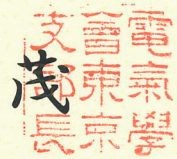 電氣學
會東京
支部長
茂